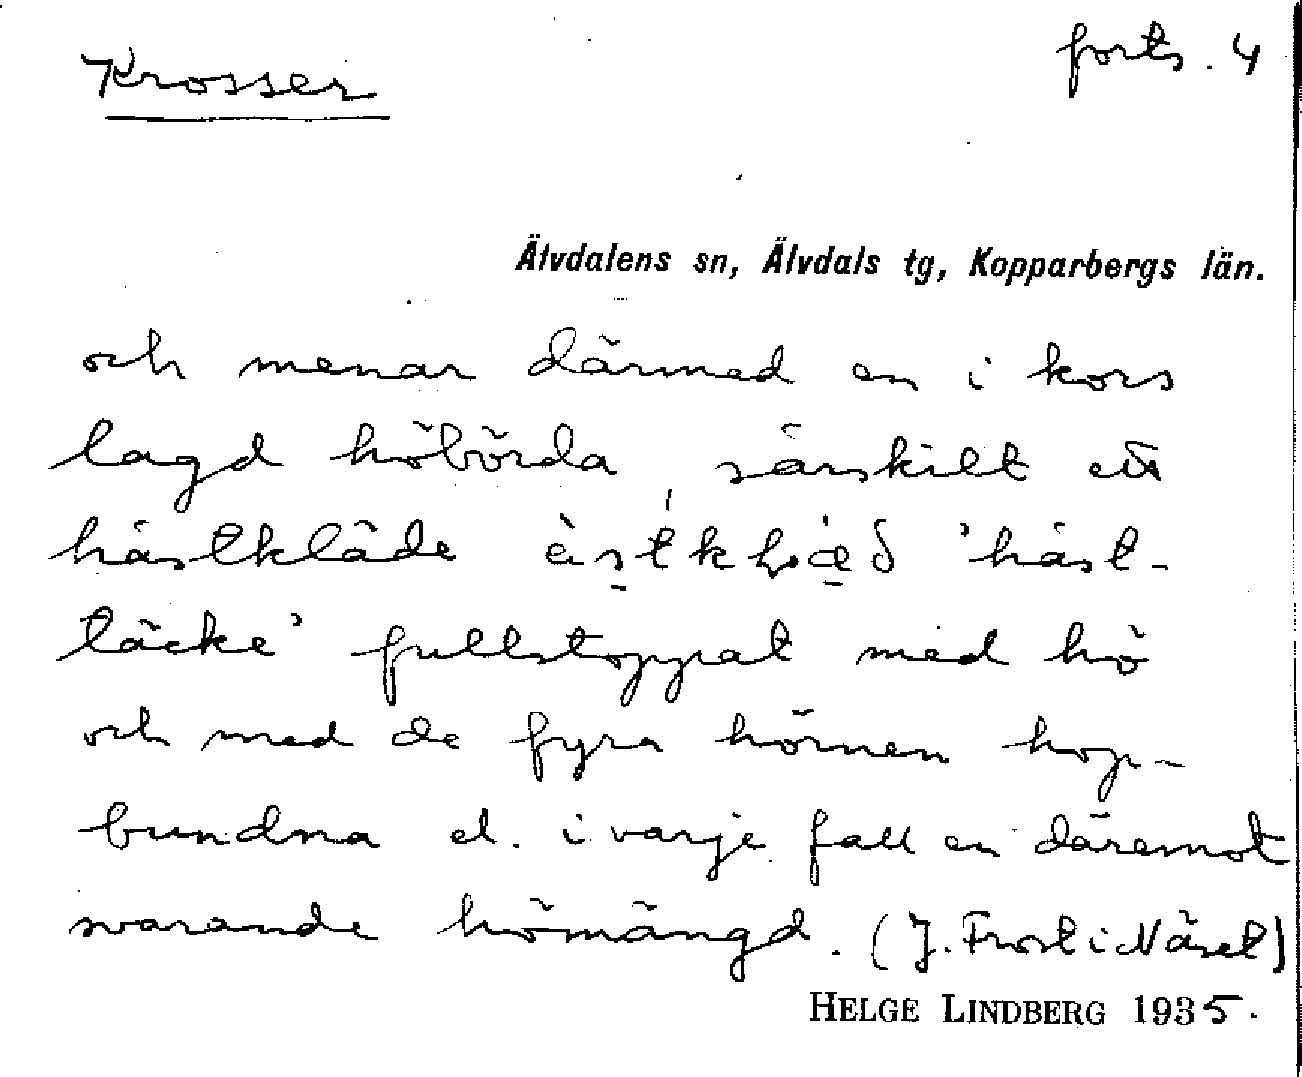 Krosser
forts. 4
Älvdalens sn, Älvdals tg, Kopparbergs län.
och menar därmed en i kors
lagd höbörda, särskilt ett
hästkläde 'häst-
täcke' fullstoppat med hö
och med de fyra hörnen hop-
bundna el. i varje fall en däremot
svarande hömängd. (J. Frost i Näset)
HELGE LINDBERG 1935.